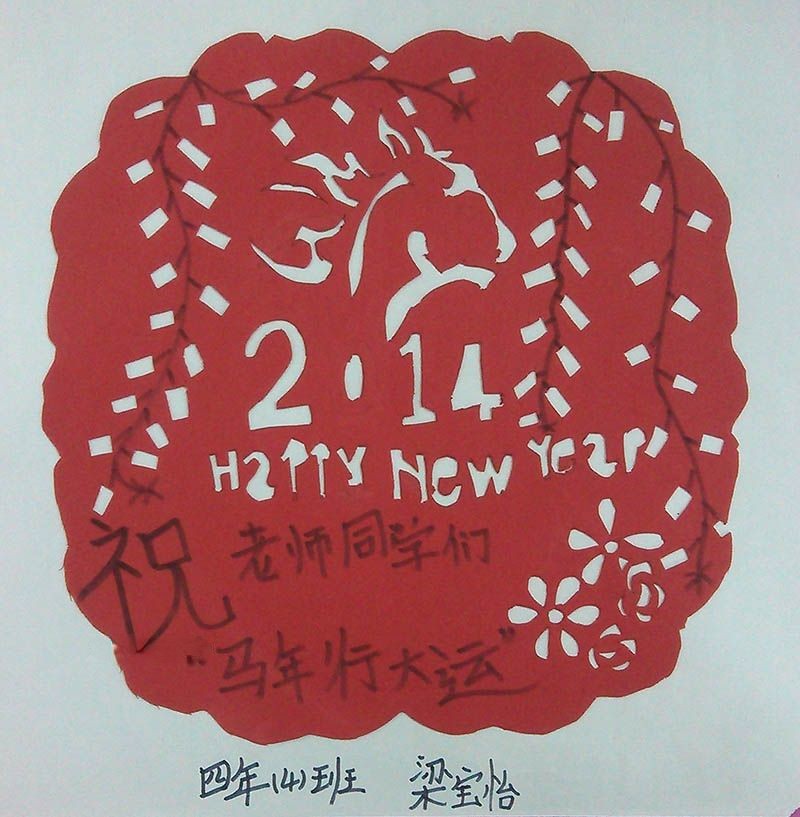 2014
Happy New Year
祝 老师同学们
"马年行大运"
四年(4)班 梁宝怡